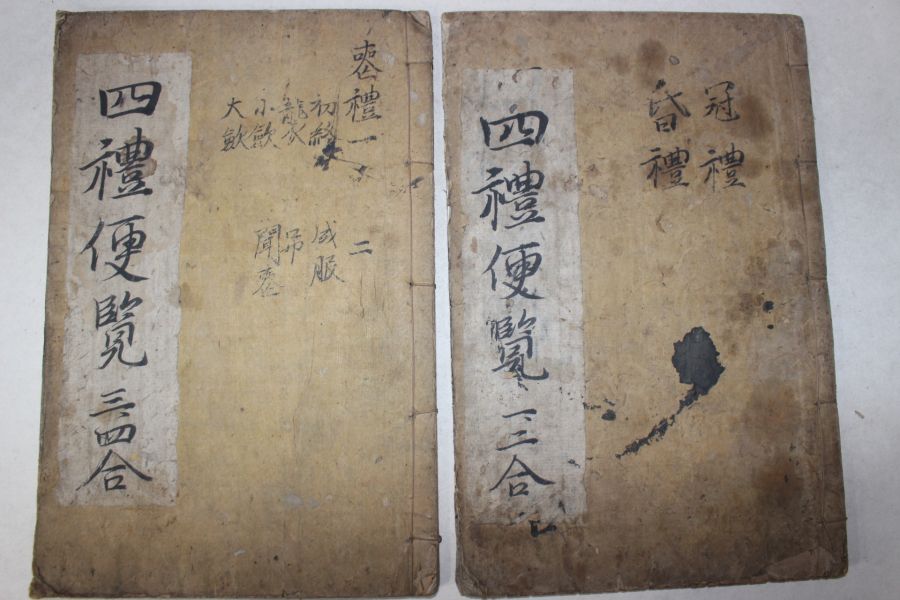 冠禮
昏禮
四禮便覽 一二合
喪禮一
二
初終
成服
襲
弔
小歛
聞喪
大歛
四禮便覽 三四合